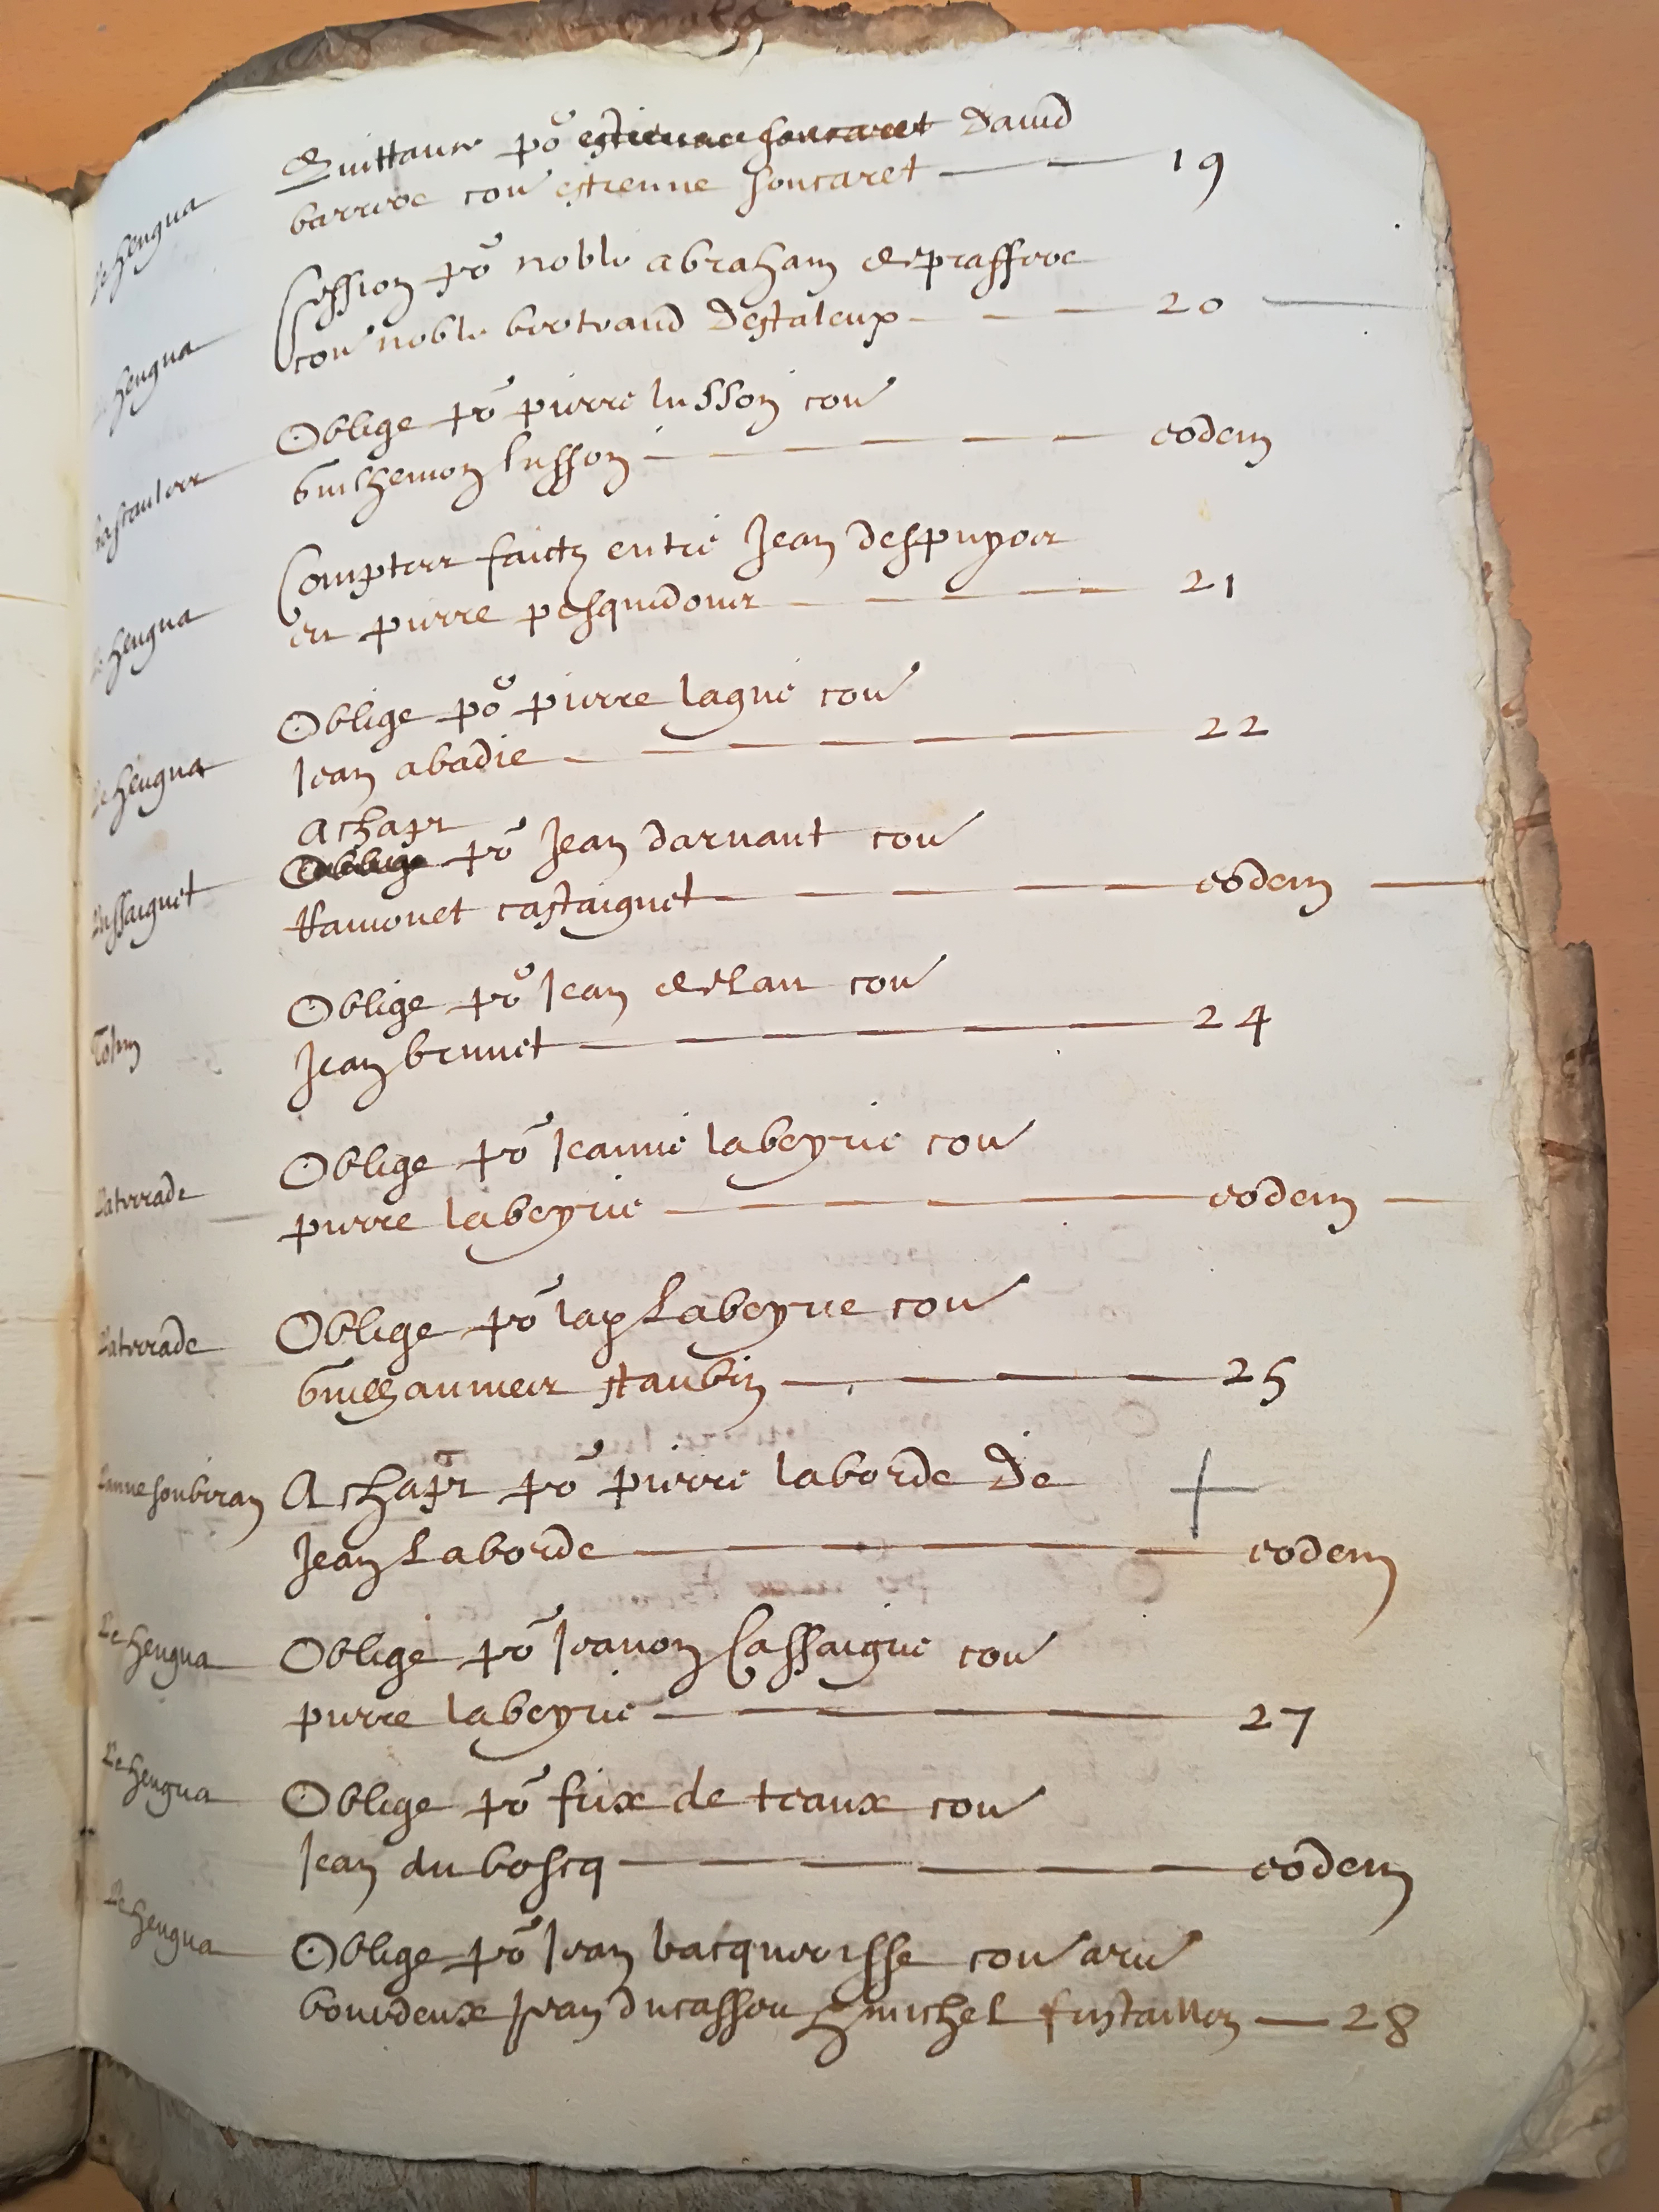 Le hengua
Quittance po estienne foucaret david
barrere con estienne foucaret 19
hengua
Cession po noble abraham de prassere
con noble bertrand destaleux 20
Oblige po pierre lusson con
Guilhemon lusson eodem
Comptes faictz entre Jean despuyos
et pierre pesquidoux 21
Le hengua
Oblige po pierre lague con
Jean abadie 22
Le hengua
Achapt
Oblige po Jean darnaut con
Ramonet castaignet eodem
Lussaignet
Oblige po Jean delau con
Jean brunet 24
Oblige po Jeanne labeyrie con
pierre labeyrie eodem
Laterrade
Oblige po Labeyrie con
Guilhaumes staubin 25
Laterrade
Lannesoubiran
Achapt po pierre laborde de
Jean Laborde eodem
Le hengua
Oblige po Jeanon Cassaigne con
pierre labeyrie 27
Le hengua
Oblige po frix de teaux con
Jean du boscq eodem
Le hengua
Oblige po Jean bacquerisse con
bourdeux Jean ducassou & michel 28